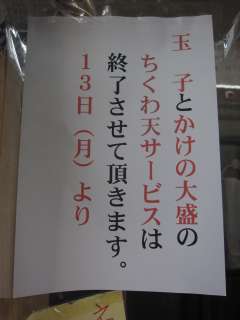 玉　子とかけの大盛の
ちくわ天サービスは
終了させて頂きます。
１３日（月）より